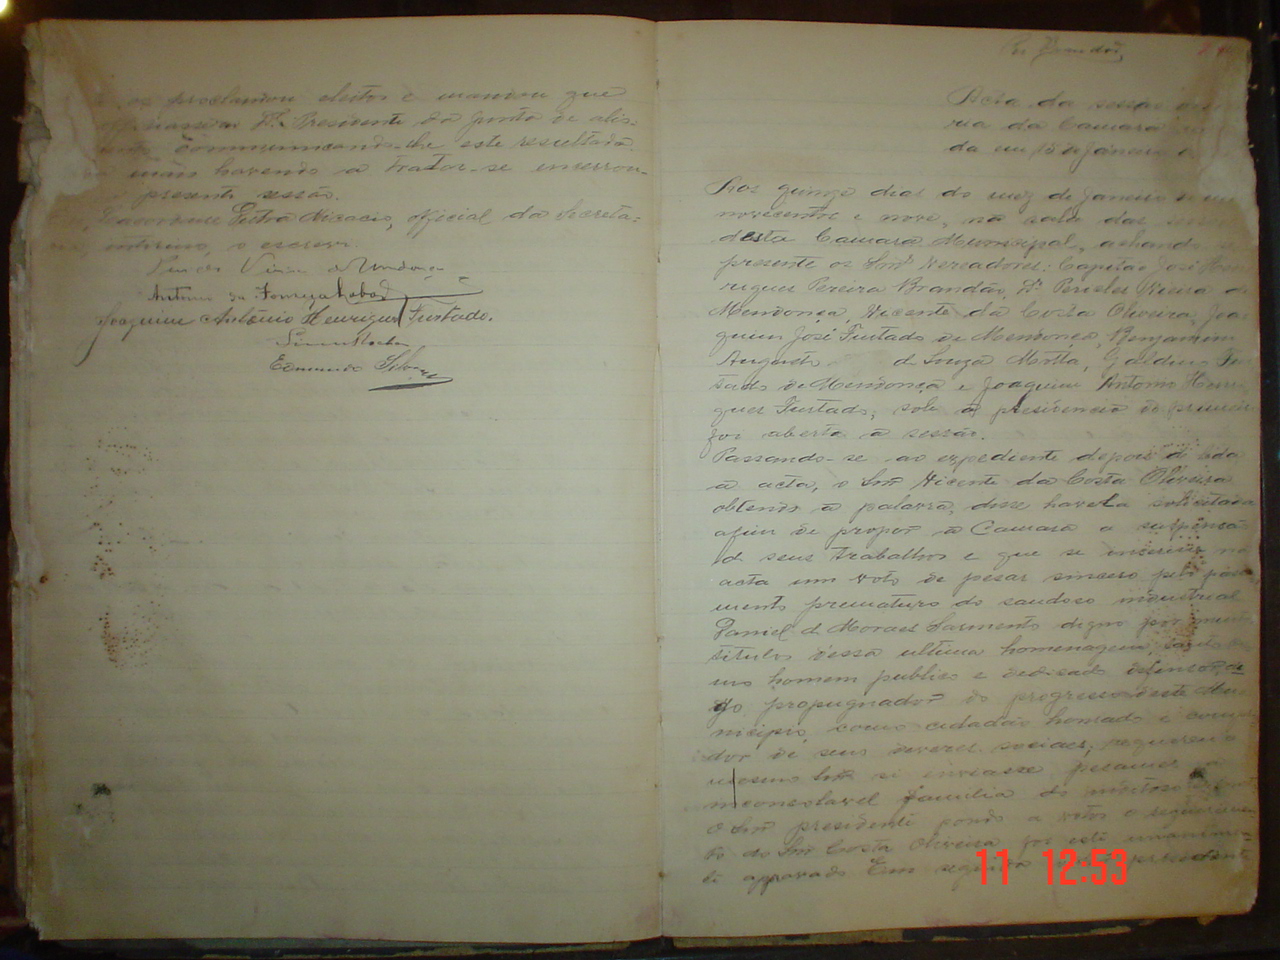 os proclamou eleitos e mandou que
Dr. Presidente da junta de alis-
communicando-lhe este resultado.
mais havendo a tratar-se encerrou-
presente sessão.
official da Secreta-
interino, o escrevi.
Antonio da Fonseca Lobo
Joaquim Antônio Henriques Furtado.
Edmundo Silva
Acta da sessão
ria da Camara
da em 15 de Janeiro
Aos quinze dias do mez de Janeiro de mil
novecentos e nove, na sala das
desta Camara Municipal, achando-se
presente os Snrs Vereadores: Capitão José Hen-
riques Pereira Brandão, Dr. Pericles Vieira de
Mendonça, Vicente da Costa Oliveira, Joa-
quim José Furtado de Mendonça, Benjamim
Augusto de Souza Motta, Galdino Fur-
tado de Mendonça e Joaquim Antonio Henri-
ques Furtado, sob a presidencia do primeiro
foi aberta a sessão.
Passando-se ao expediente depois de lida
a acta, o Snr Vicente da Costa Oliveira
obtendo a palavra, disse havel-a solicitada
afim de propor à Camara a suspensão
de seus trabalhos e que se inserisse na
acta um voto de pesar sincero pelo passa-
mento prematuro do saudoso industrial
Daniel de Moraes Sarmento digno por muitos
titulos dessa ultima homenagem,
mo homem publico e dedicado defensor
propugnador do progresso deste Mu-
nicipio, como cidadão honrado e cumpri-
dor de seus deveres sociaes, requereu o
mesmo Snr se enviasse pesames
inconsolavel familia do
O Snr presidente pondo a votos o requerimen-
to do Snr Costa Oliveira foi este unanimemen-
te approvado. Em seguida
11 12:53